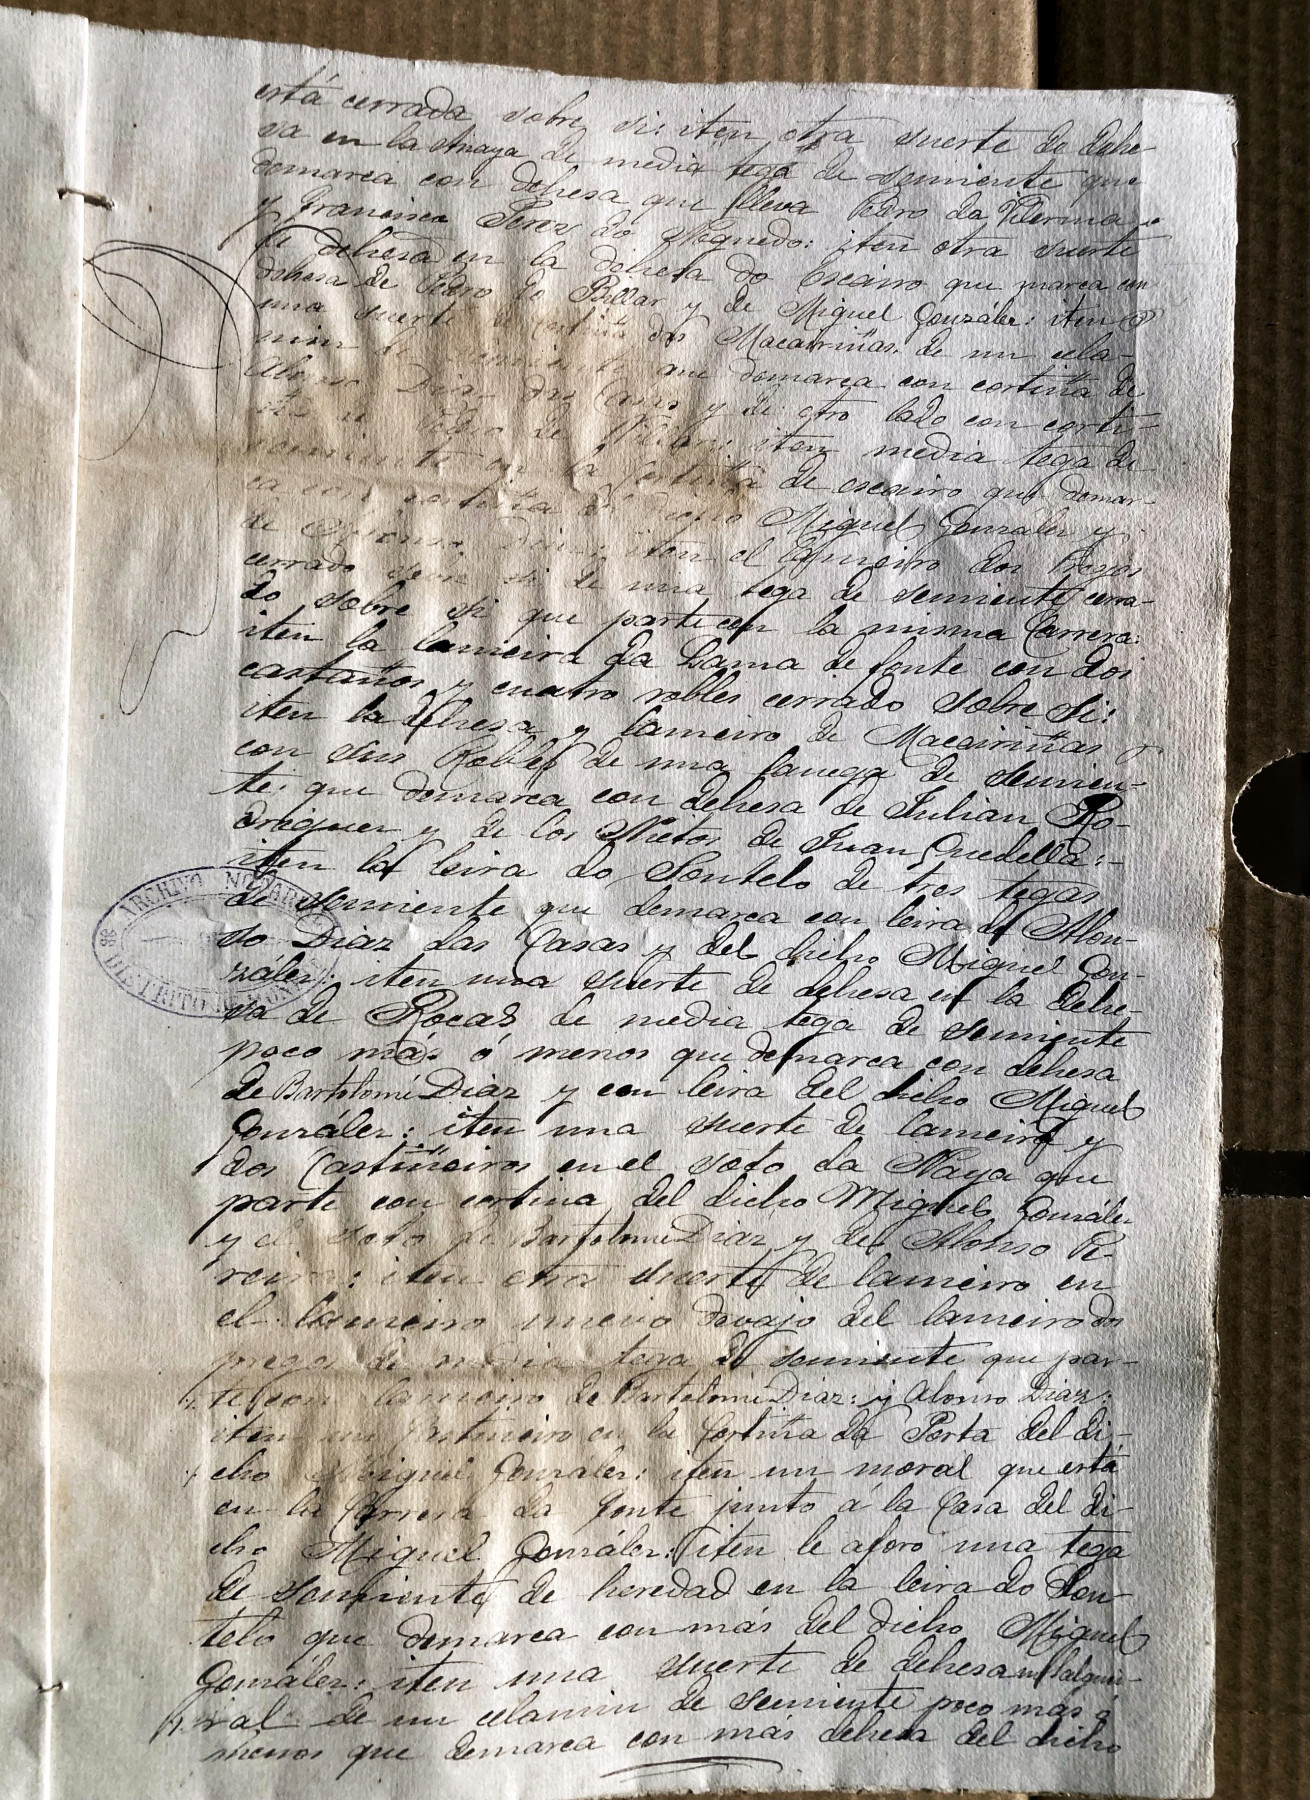 está cerrada sobre si: iten otra suerte de dehe-
sa en la Anaya de media tega de semiente que
demarca con dehesa que lleva Pedro da Viderma
y Francisco Perez do Noguedo: iten otra suerte
de dehesa en la dehesa do Escairo que marca con
dehesa de Pedro do Billar y de Miguel González: iten
una suerte de cortiña das Macairiñas de un cela-
min de semiente que demarca con cortiña de
Alonso Diaz das Casas y de otro lado con corti-
de Pedro de Villar: iten media tega de
semiente en la Cortiña de escairo que demar-
ca con cortiña de Miguel González y
de Alonso Diaz: iten el lameiro dos Pregos
cerrado sobre si de una tega de semiente cerra-
do sobre si que parte con la misma Carrera:
iten la lameira da Lama de fonte con dos
castaños y cuatro robles cerrado sobre si:
iten la dehesa y lameiro de Macairiñas
con sus Robles de una fanega de semien-
te: que demarca con dehesa de Julian Ro-
driguez y de los Nietos de Juan Quedella:-
iten la leira do Sontelo de tres tegas
de semiente que demarca con leira de Alon-
so Diaz das Casas y del dicho Miguel Gon-
zález: iten una suerte de dehesa en la dehe-
sa de Rocas de media tega de semiente
poco más ó menos que demarca con dehesa
de Bartolomé Diaz y con leira del dicho Miguel
González: iten una suerte de lameiro y
dos Castiñeiros en el soto da Naya que
parte con cortina del dicho Miguel González
y el soto de Bartolomé Diaz y de Alonso Pe-
reira: iten otra suerte de lameiro en
el lameiro nuevo devajo del lameiro do
prego de media tega de semiente que par-
te con lameiro de Bartolomé Diaz: y Alonso Diaz:
iten un en la Cortiña da Porta del di-
cho Miguel González: iten un moral que está
en la Carrera da fonte junto á la Casa del di-
cho Miguel González: iten le aforo una tega
de semiente de heredad en la leira do Son-
telo que demarca con más del dicho Miguel
González: iten una suerte de dehesa en
ral de un celamin de semiente poco mas ó
menos que demarca con más dehesa del dicho
ARCHIVO NOTARIAL
DISTRITO